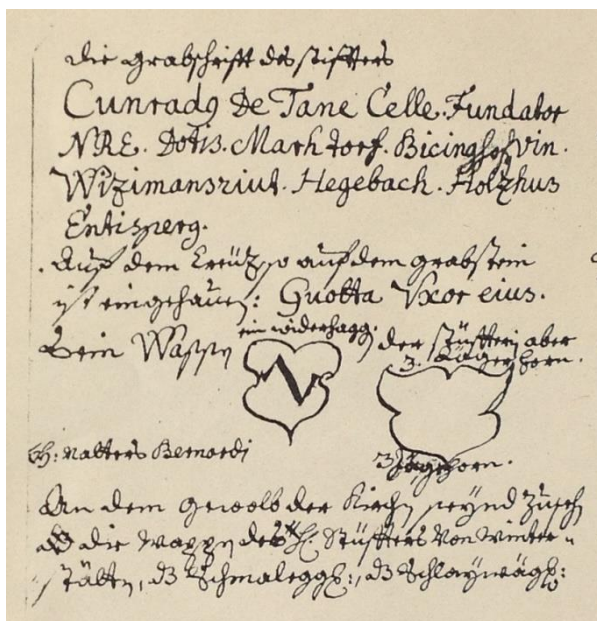 die grabschrifft des stiffters
Cunrad9 De Tane Celle. Fundator
NRE. Dotis. Marhtorf. Bicinghofvin.
Wizimansriut. Hegebach. Holzhus
Entisperg.
Auf dem Creütz so auf dem grabstein
ist eingehauen: Guotta Vxor eius.
Sein Wappen
ein widerhagg.
der Stüffterin aber
3. Jägerhorn.
N
Ch: Valters Bernardi
3 Jägerhorn.
An dem gewölb der Kirchen seynd
die Wappen des Stüffters von Winter-
stätten, dz Schmalegg:, dz